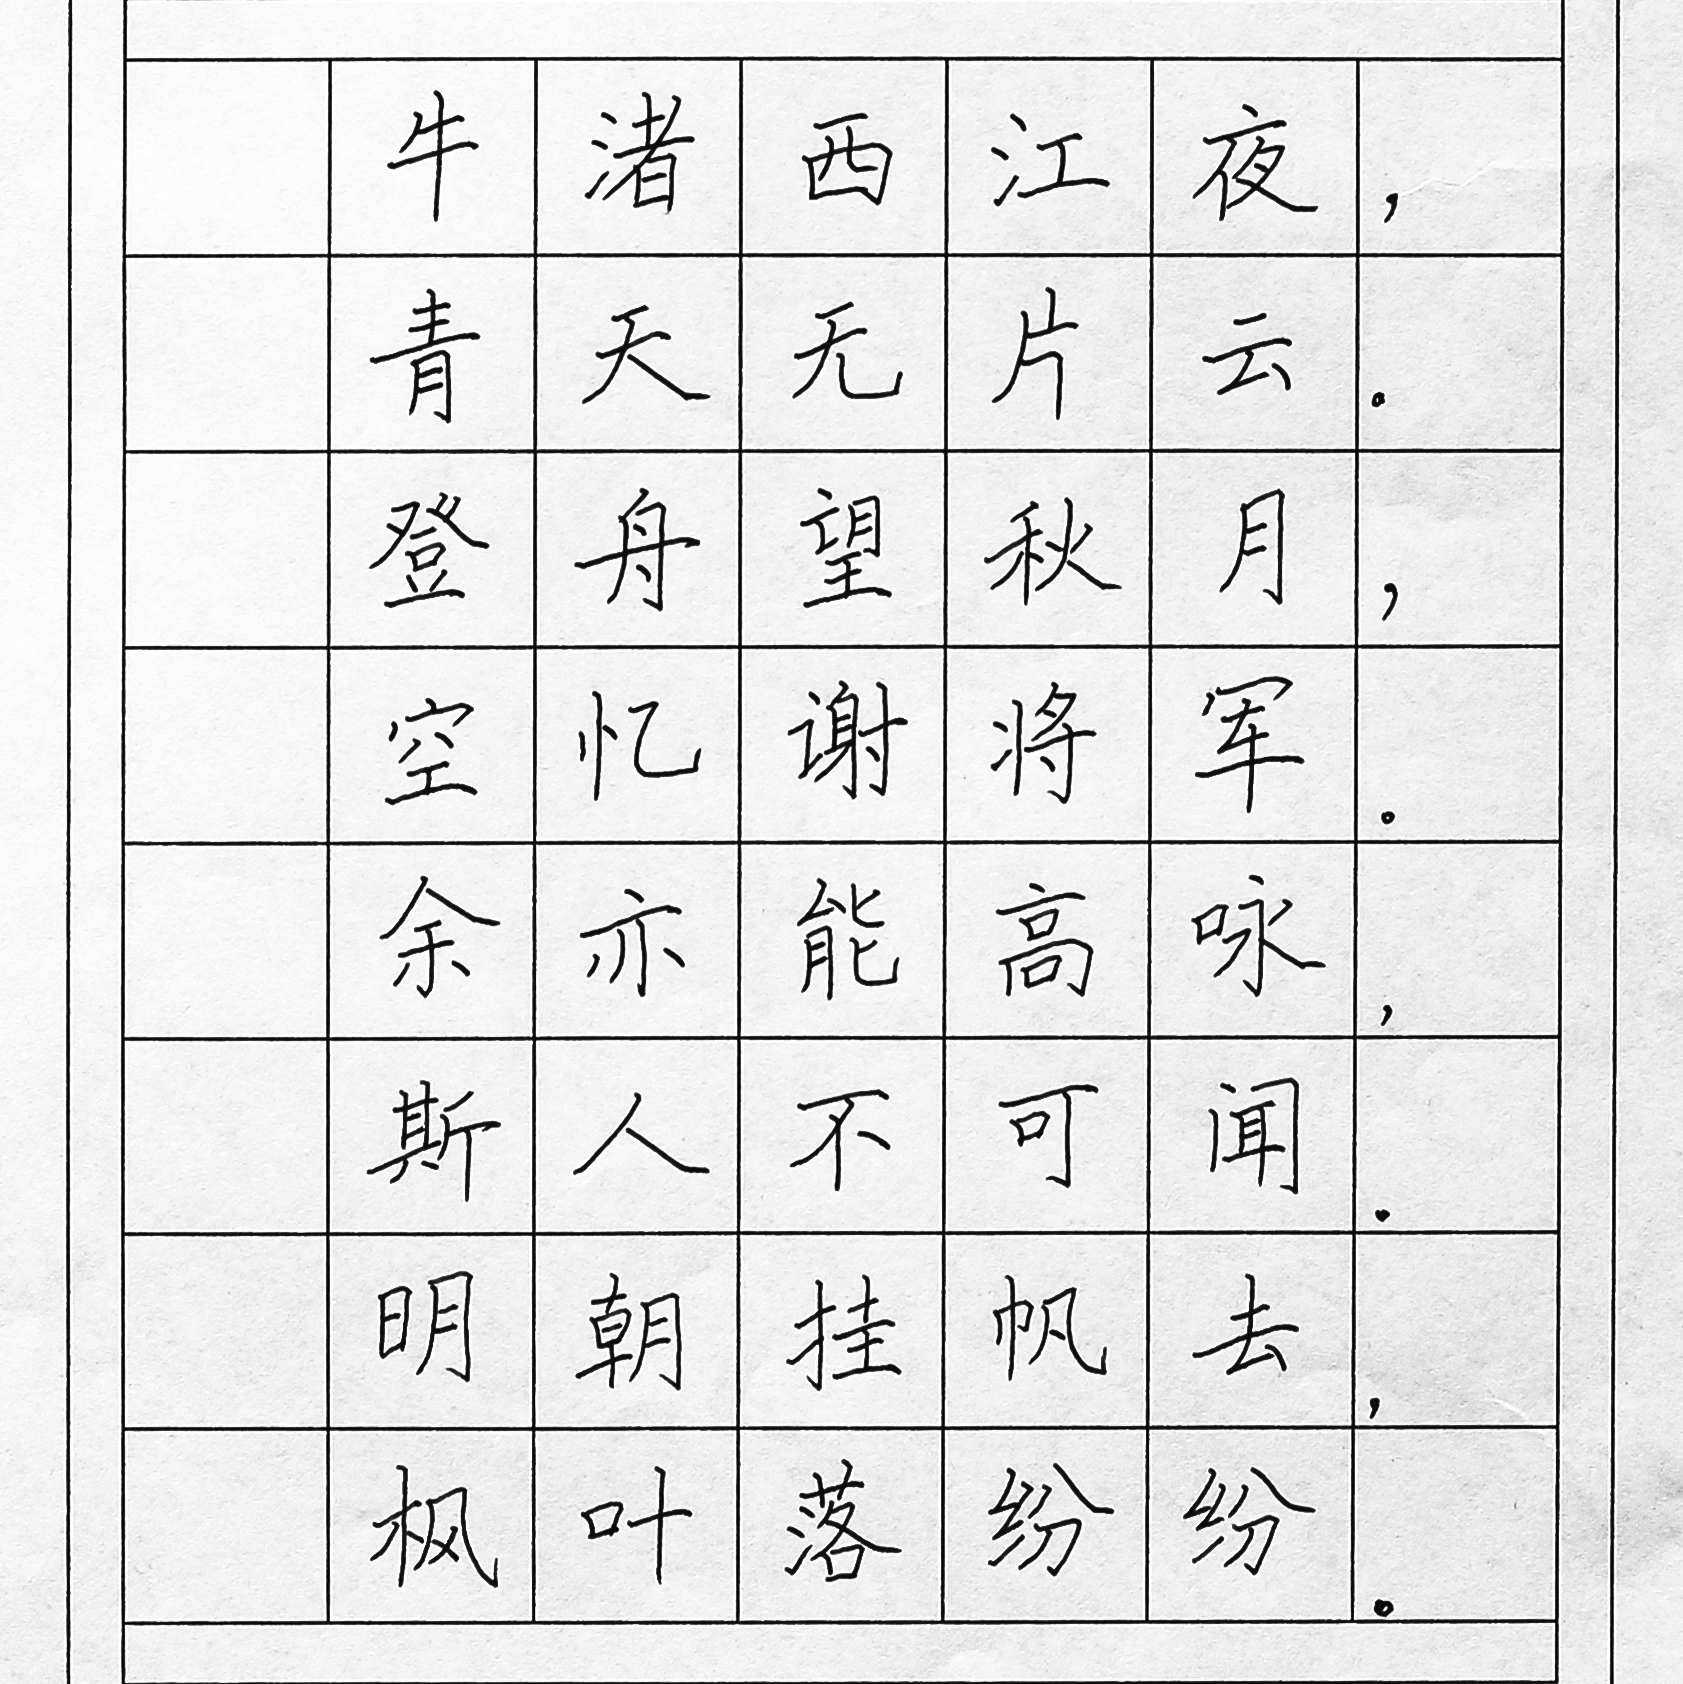 牛渚西江夜，
青天无片云。
登舟望秋月，
空忆谢将军。
余亦能高咏，
斯人不可闻。
明朝挂帆去，
枫叶落纷纷。